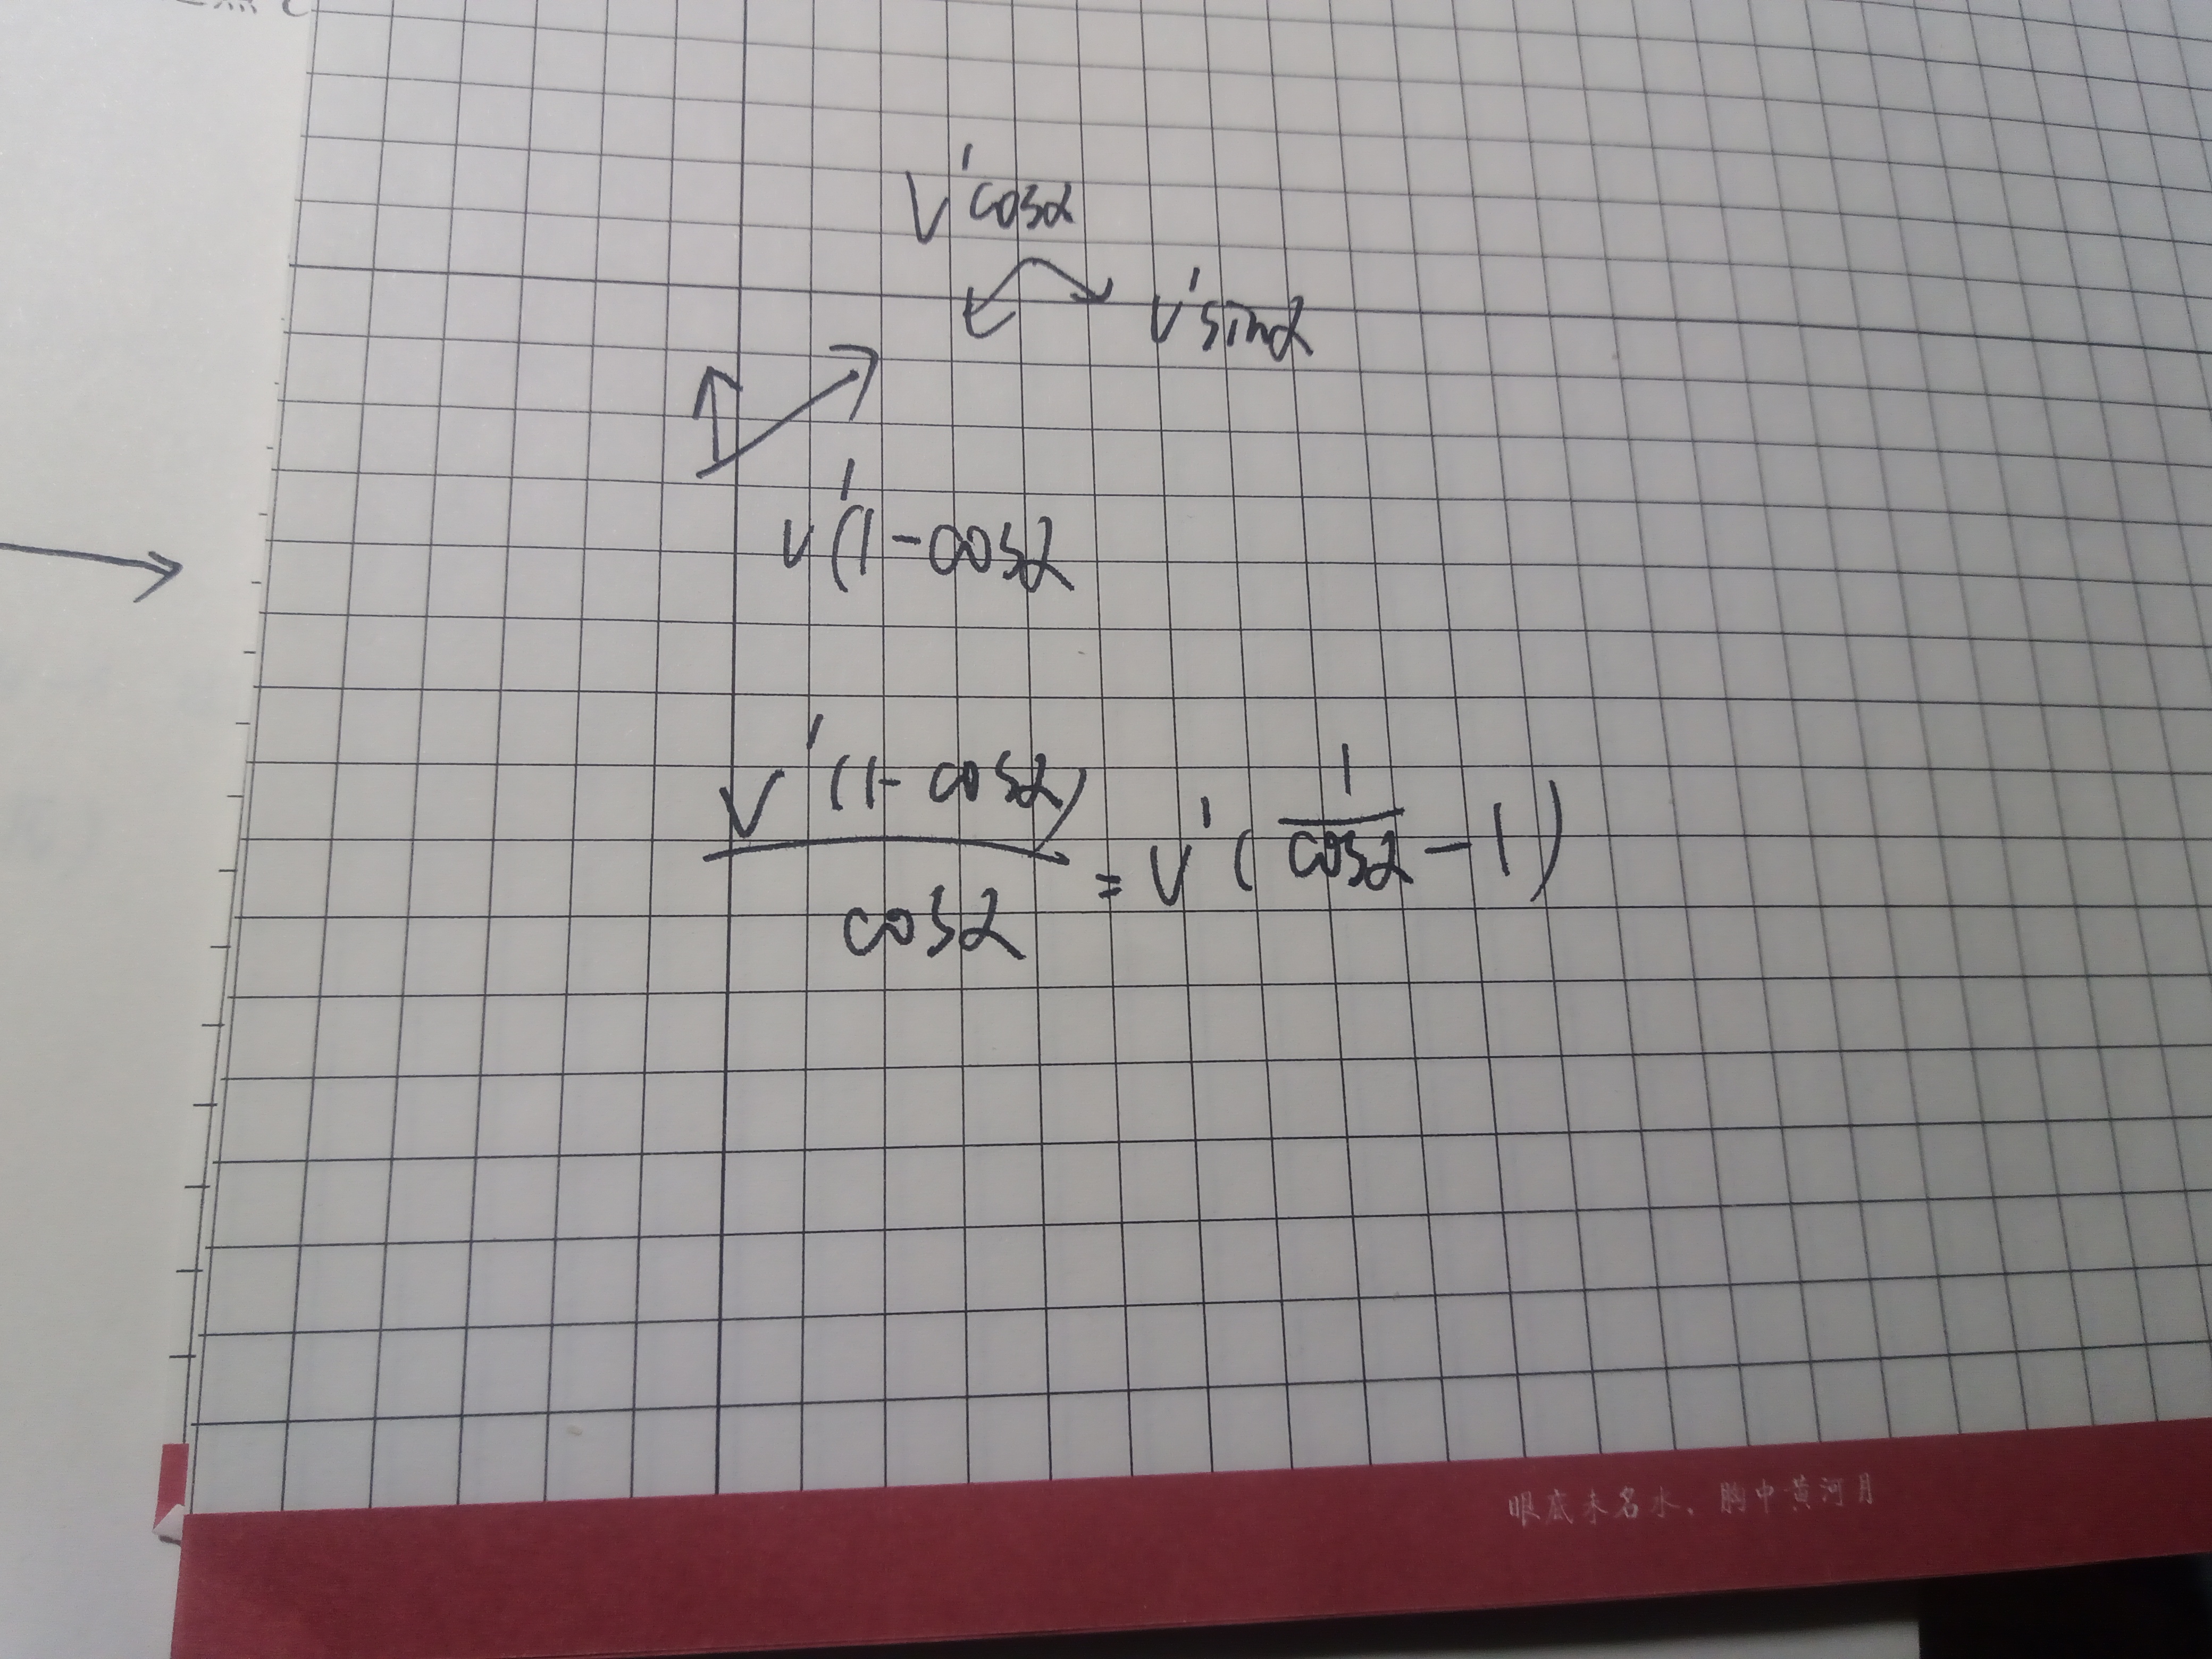 V'cosα
V'sinα
V'(1-cosα
V'(1-cosα)/cosα = V'(1/cosα - 1)
眼底未名水，胸中黄河月